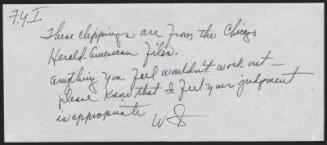 F.Y.I.
These clippings are from the Chicago
Herald-American files.
anything you feel wouldn't work out —
please know that I feel your judgment
is appropriate